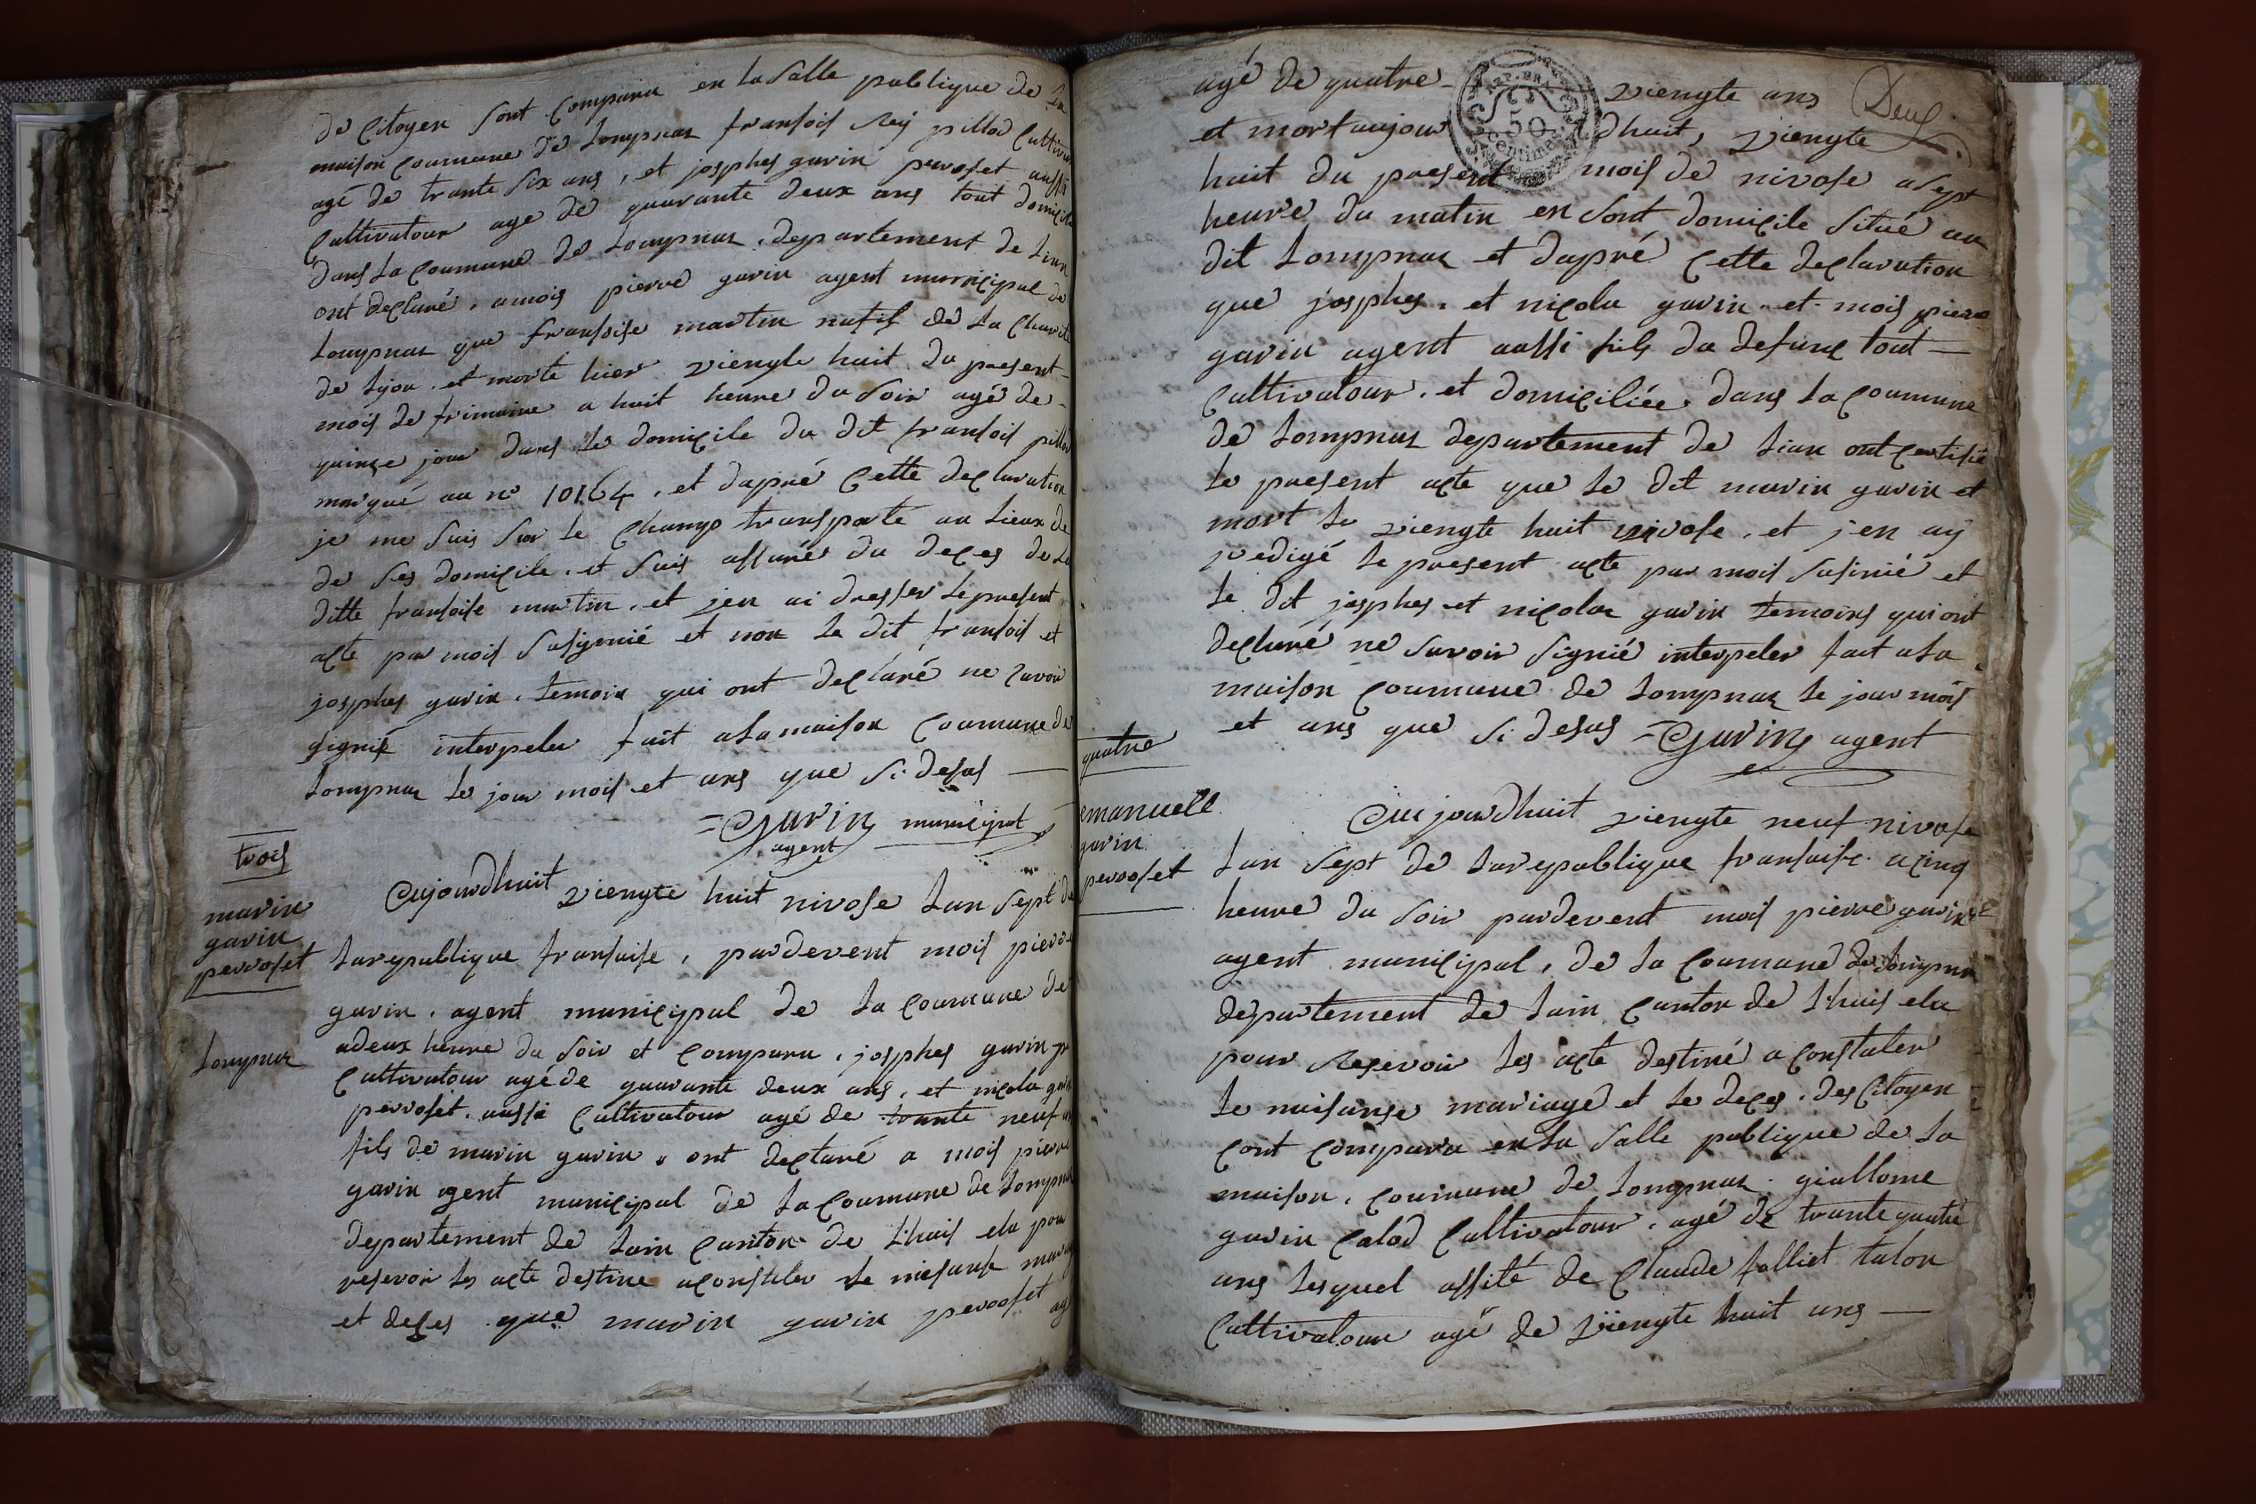 de Citoyen sont comparu en la salle publique de la
maison coumune de Lompnas fransois Rey pillod Cultiva
agé de trante six ans, et josphes gavin perroset aussi
Cultivatour age de quarante deux ans tout domicil
dans la Coumune de Lompnas, departement de Lian
ont declaré, a mois pierre gavin agent municipal de
Lompnas que fransoise martin natif de La Charité
de Lÿon. et morte hier viengte huit du present
mois de frimaire a huit heure du soir agé de
quinze jour dans le domicile du dit fransois pillod
marqué au n° 10164, et dapré Cette declaration
je me suis sur le Champ transporté au Lieux de
de ses domicile. et suis assuré du deces de La
ditte fransoise martin, et jen ai dresser le present
acte par mois susignié et non le dit fransois et
josphes gavin. temoin qui ont declaré ne savoir
signié interpeler fait ala maison Coumune de
Lompnas le jour mois et ans que si desus
= Gavin municipal
agent
trois
marin
gavin
perroset
Lompnas
Aujourdhuit viengte huit nivose Lan sept de
La republique fransaise, pardevent mois pierre
gavin. agent municipal de La Coumune de
adeux heure du soir et Comparu, josphes gavin pr
Cultivatour agé de quarante deux ans, et nicola gavin
perroset. aussi Cultivatour agé de trante neuf an
fils de marin gavin, ont declaré a mois pierre
gavin agent municipal de La Coumune de Lompnas
departement de Lain Canton de Lhuis elu pour
reservoir les acte destine aconstater le niesanse mariag
et deces que marin gavin perroset ag
agé de quatre viengte ans Deux
et mort aujour dhuit, viengte
huit du present mois de nivose a sept
heure du matin en sont domicile situé au
dit Lompnas et dapré Cette declaration
que josphes. et nicola gavin et mois pierre
gavin agent aussi fils du defunc tout
Cultivatour. et domiciliée, dans La Coumune
de Lompnas departement de Lian ont certifié
le present acte que le dit marin gavin et
mort le viengte huit nivose, et jen aÿ
redigé le present acte par mois susinié et
le dit josphes et nicolas gavin temoins qui ont
declaré ne savoir signié interpeler fait a La
maison Coumune de Lompnas le jour mois
et ans que si desus = Gavin agent
quatre
emanuell
gavin
perroset
Aujourdhuit viengte neuf nivose
Lan sept de La republique fransaise. acinq
heure du soir pardevent mois pierre gavin
agent municipal, de La Coumune de Lompnas
departement de Lain Canton de Lhuis elu
pour Reservoir les acte destiné a constater
le naisanse mariage et le deces. des Citoyen
cont comparu en La salle publique de La
maison, coumune de Lompnas. giullome
gavin Calod Cultivatour, agé de trante quatre
ans Lesquel assité de Claude falliet talon
Cultivatour agé de viengte huit ans
REP. FRA
50
Centimes